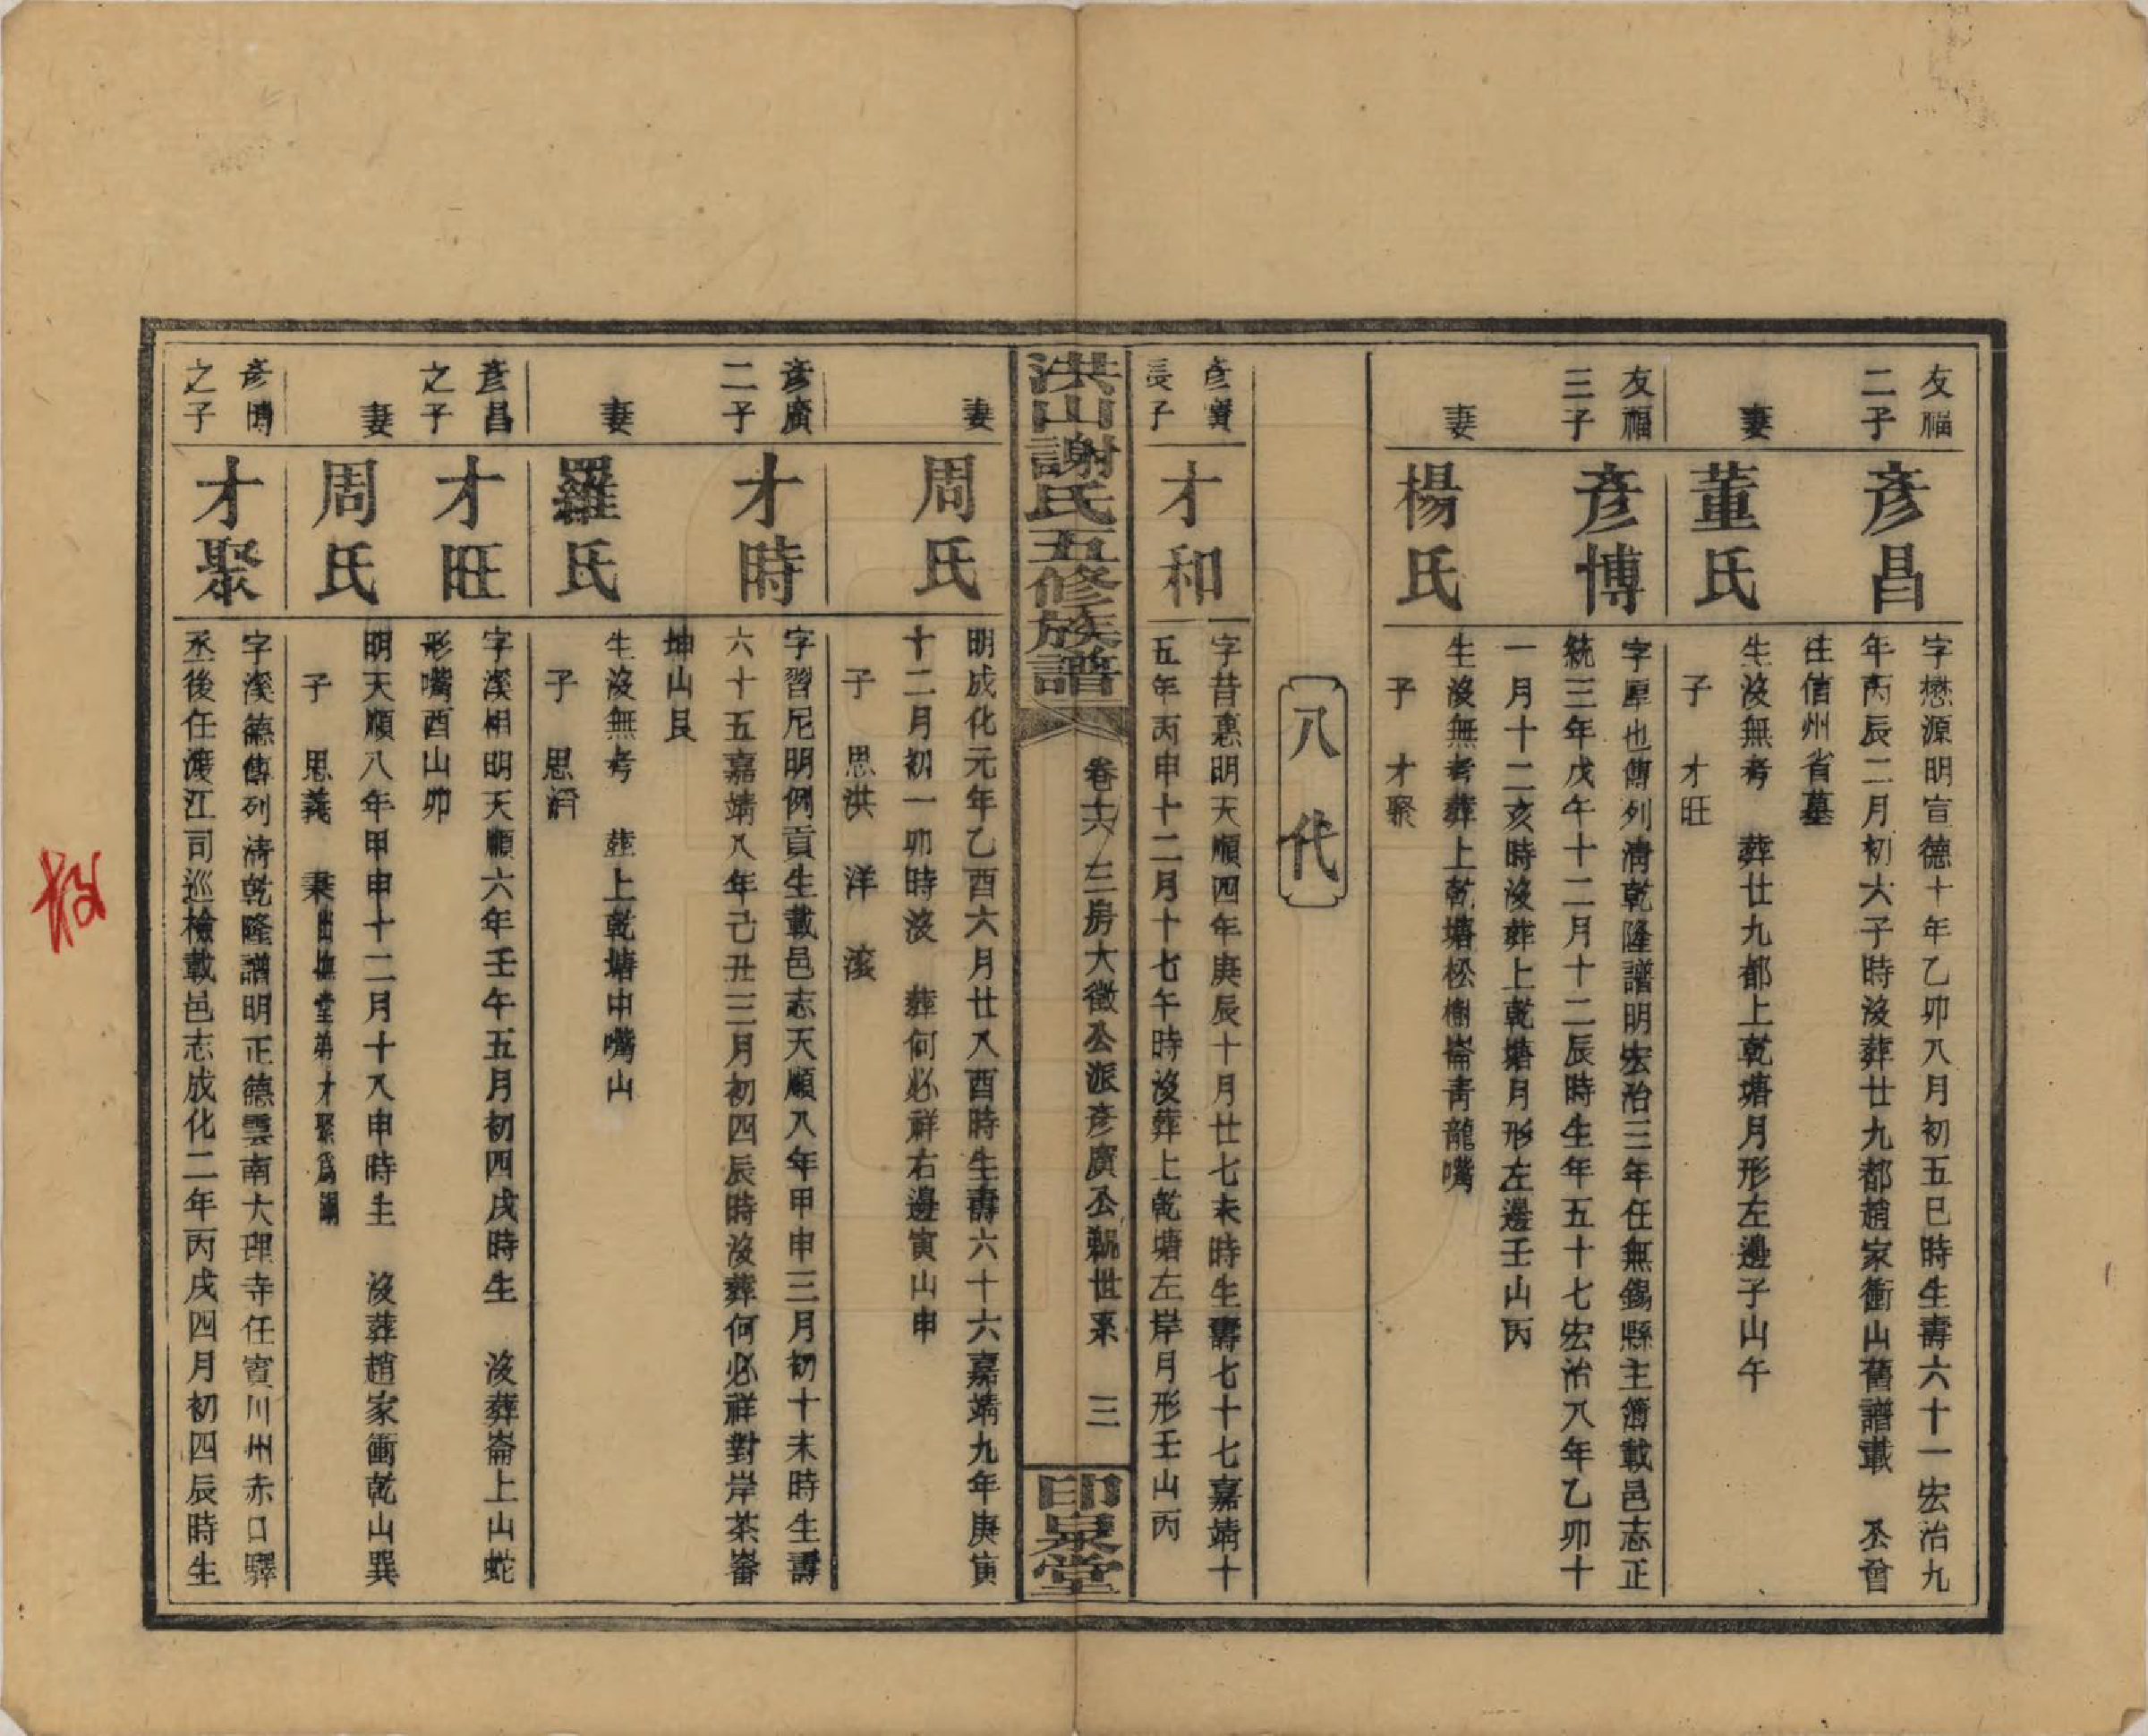 友福
二子
彥昌
字懋源明宣德十年乙卯八月初五巳時生壽六十一宏治九
年丙辰二月初六子時沒葬廿九都趙家衝山舊譜載 公曾
往信州省墓
妻
董氏
生沒無考 葬廿九都上乾塘月形左邊子山午
子 才旺
友福
三子
彥博
字厚也傳列清乾隆譜明宏治三年任無錫縣主簿載邑志正
統三年戊午十二月十二辰時生年五十七宏治八年乙卯十
一月十二亥時沒葬上乾塘月形左邊壬山丙
妻
楊氏
生沒無考葬上乾塘松樹崙青龍嘴
子 才聚
八代
彥廣
長子
才和
字昔惠明天順四年庚辰十月廿七未時生壽七十七嘉靖十
五年丙申十二月十七午時沒葬上乾塘左岸月形壬山丙
洪山謝氏五修族譜
卷十六 三房大徵公派彥廣公親世系 三
印泉堂
妻
周氏
明成化元年乙酉六月廿八酉時生壽六十六嘉靖九年庚寅
十二月初一卯時沒 葬何必祥右邊寅山申
子 思洪 洋 滾
彥廣
二子
才時
字習尼明例貢生載邑志天順八年甲申三月初十未時生壽
六十五嘉靖八年己丑三月初四辰時沒葬何必祥對岸茶崙
坤山艮
妻
羅氏
生沒無考 葬上乾塘中嘴山
子 思
彥昌
之子
才旺
字溪相明天順六年壬午五月初四戌時生 沒葬崙上山蛇
形嘴酉山卯
妻
周氏
明天順八年甲申十二月十八申時生 沒葬趙家衝乾山巽
子 思義 秉出撫堂弟才聚爲嗣
彥博
之子
才聚
字溪德傳列清乾隆譜明正德雲南大理寺任賓川州赤口驛
丞後任渡江司巡檢載邑志成化二年丙戌四月初四辰時生